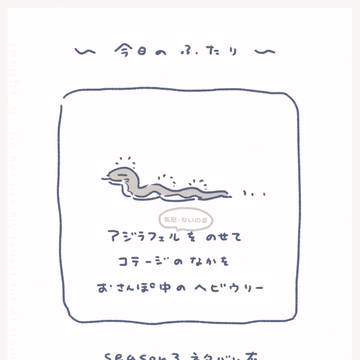 〜 今日のふたり 〜
気配・ないの姿
アジラフェルをのせて
コテージのなかを
おさんぽ中のヘビウリー
season3 ネタバレ有